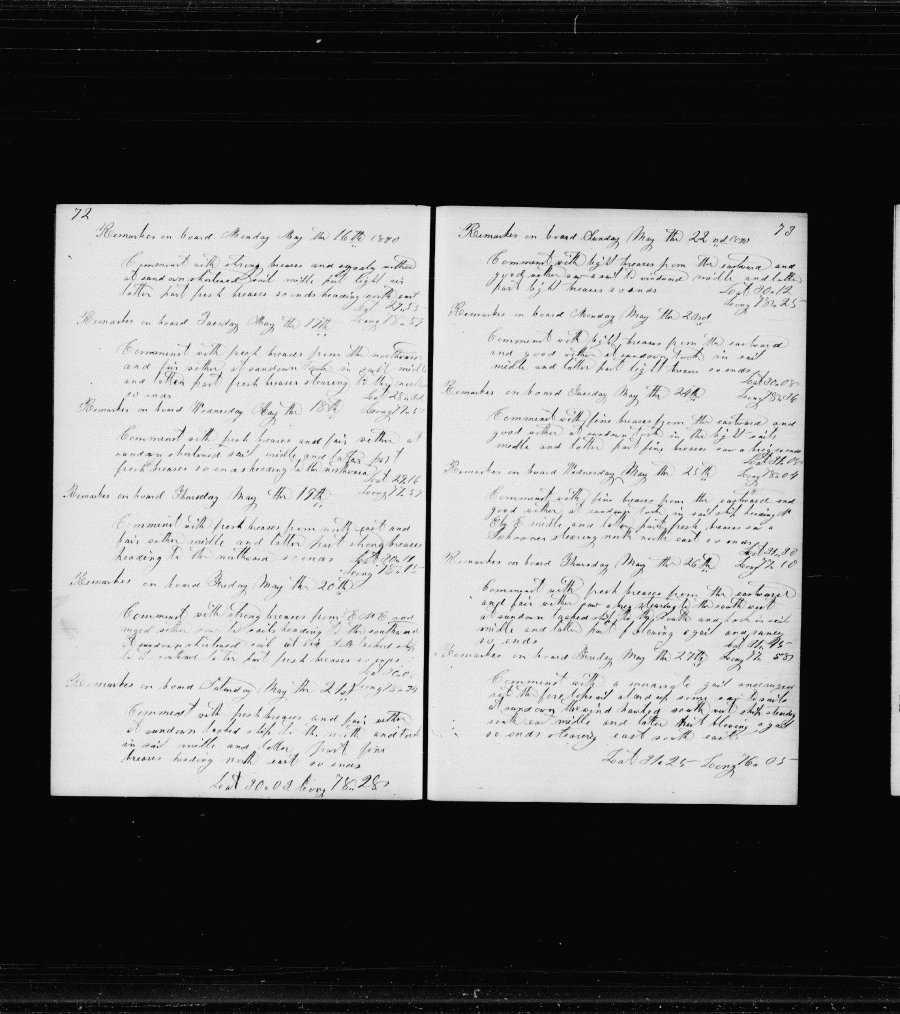 72
Remarkes on board Monday May the 16th 1870
Comment with strong breases and squaly wether
at sundown shortened sail midle part light air
latter part fresh breases so ends heading north east
Lat 27.55
Remarkes on board Tuesday May the 17th Long 78.57
Comment with fresh breases from the northward
and fair wether at sundown took in sail midle
and latter part fresh breases stearing to the
so ends Lat 28
Remarkes on board Wednesday May the 18th Long 77.5
Comment with fresh breases and fair wether at
sundown shortened sail midle and latter part
fresh breases so ends heading to the northward
Lat 29.16
Remarkes on board Thursday May the 19th Long 77.57
Comment with fresh breases from north east and
fair wether midle and latter part strong breases
heading to the northward so ends Lat 30
Long 78.15
Remarkes on board Friday May the 20th
Comment with strong breases from E N E and
ruged wether sails heading to the southward
at sundown shortened sail at six tacked ship
latter part fresh breases so ends
Lat 30.0
Remarkes on board Saturday May the 21st Long 78
Comment with fresh breases and fair wether
at sundown tacked ship to the north and took
in sail midle and latter part fine
breases heading north east so ends
Lat 30.02 Long 78.28
73
Remarkes on board Sunday May the 22nd 1870
Comment with light breases from the eastward and
good wether saw a sail to windward midle and latter
part light breases so ends Lat 30.12
Long 78.25
Remarkes on board Monday May the 23rd
Comment with light breases from the eastward
and good wether at sundown took in sail
midle and latter part light breases so ends
Lat 30.08
Remarkes on board Tuesday May the 24th Long 78.16
Comment with fine breases from the eastward and
good wether at sundown took in the light sails
medle and latter part fine breases saw a brig so ends
Lat 31.08
Remarkes on board Wednesday May the 25th Long 78.04
Comment with fine breases from the eastward and
good wether at sundown took in sail ship heading N
E by E midle and latter part fresh breases saw a
Schooner stearing north north east so ends
Lat 31.30
Remarkes on board Thursday May the 26th Long 77.10
Comment with fresh breases from the eastward
and fair wether saw a brig stearing to the south west
at sundown tacked ship to the south and took in sail
midle and latter part blowing a gail and raney
so ends Lat 31.45
Remarkes on board Friday May the 27th Long 77.58
Comment with a moderate gail and ruged
set the fore topsail and up some
at sundown the wind hawled south west ship stearing
south east midle and latter part blowing a gail
so ends stearing east south east
Lat 31.25 Long 76.05